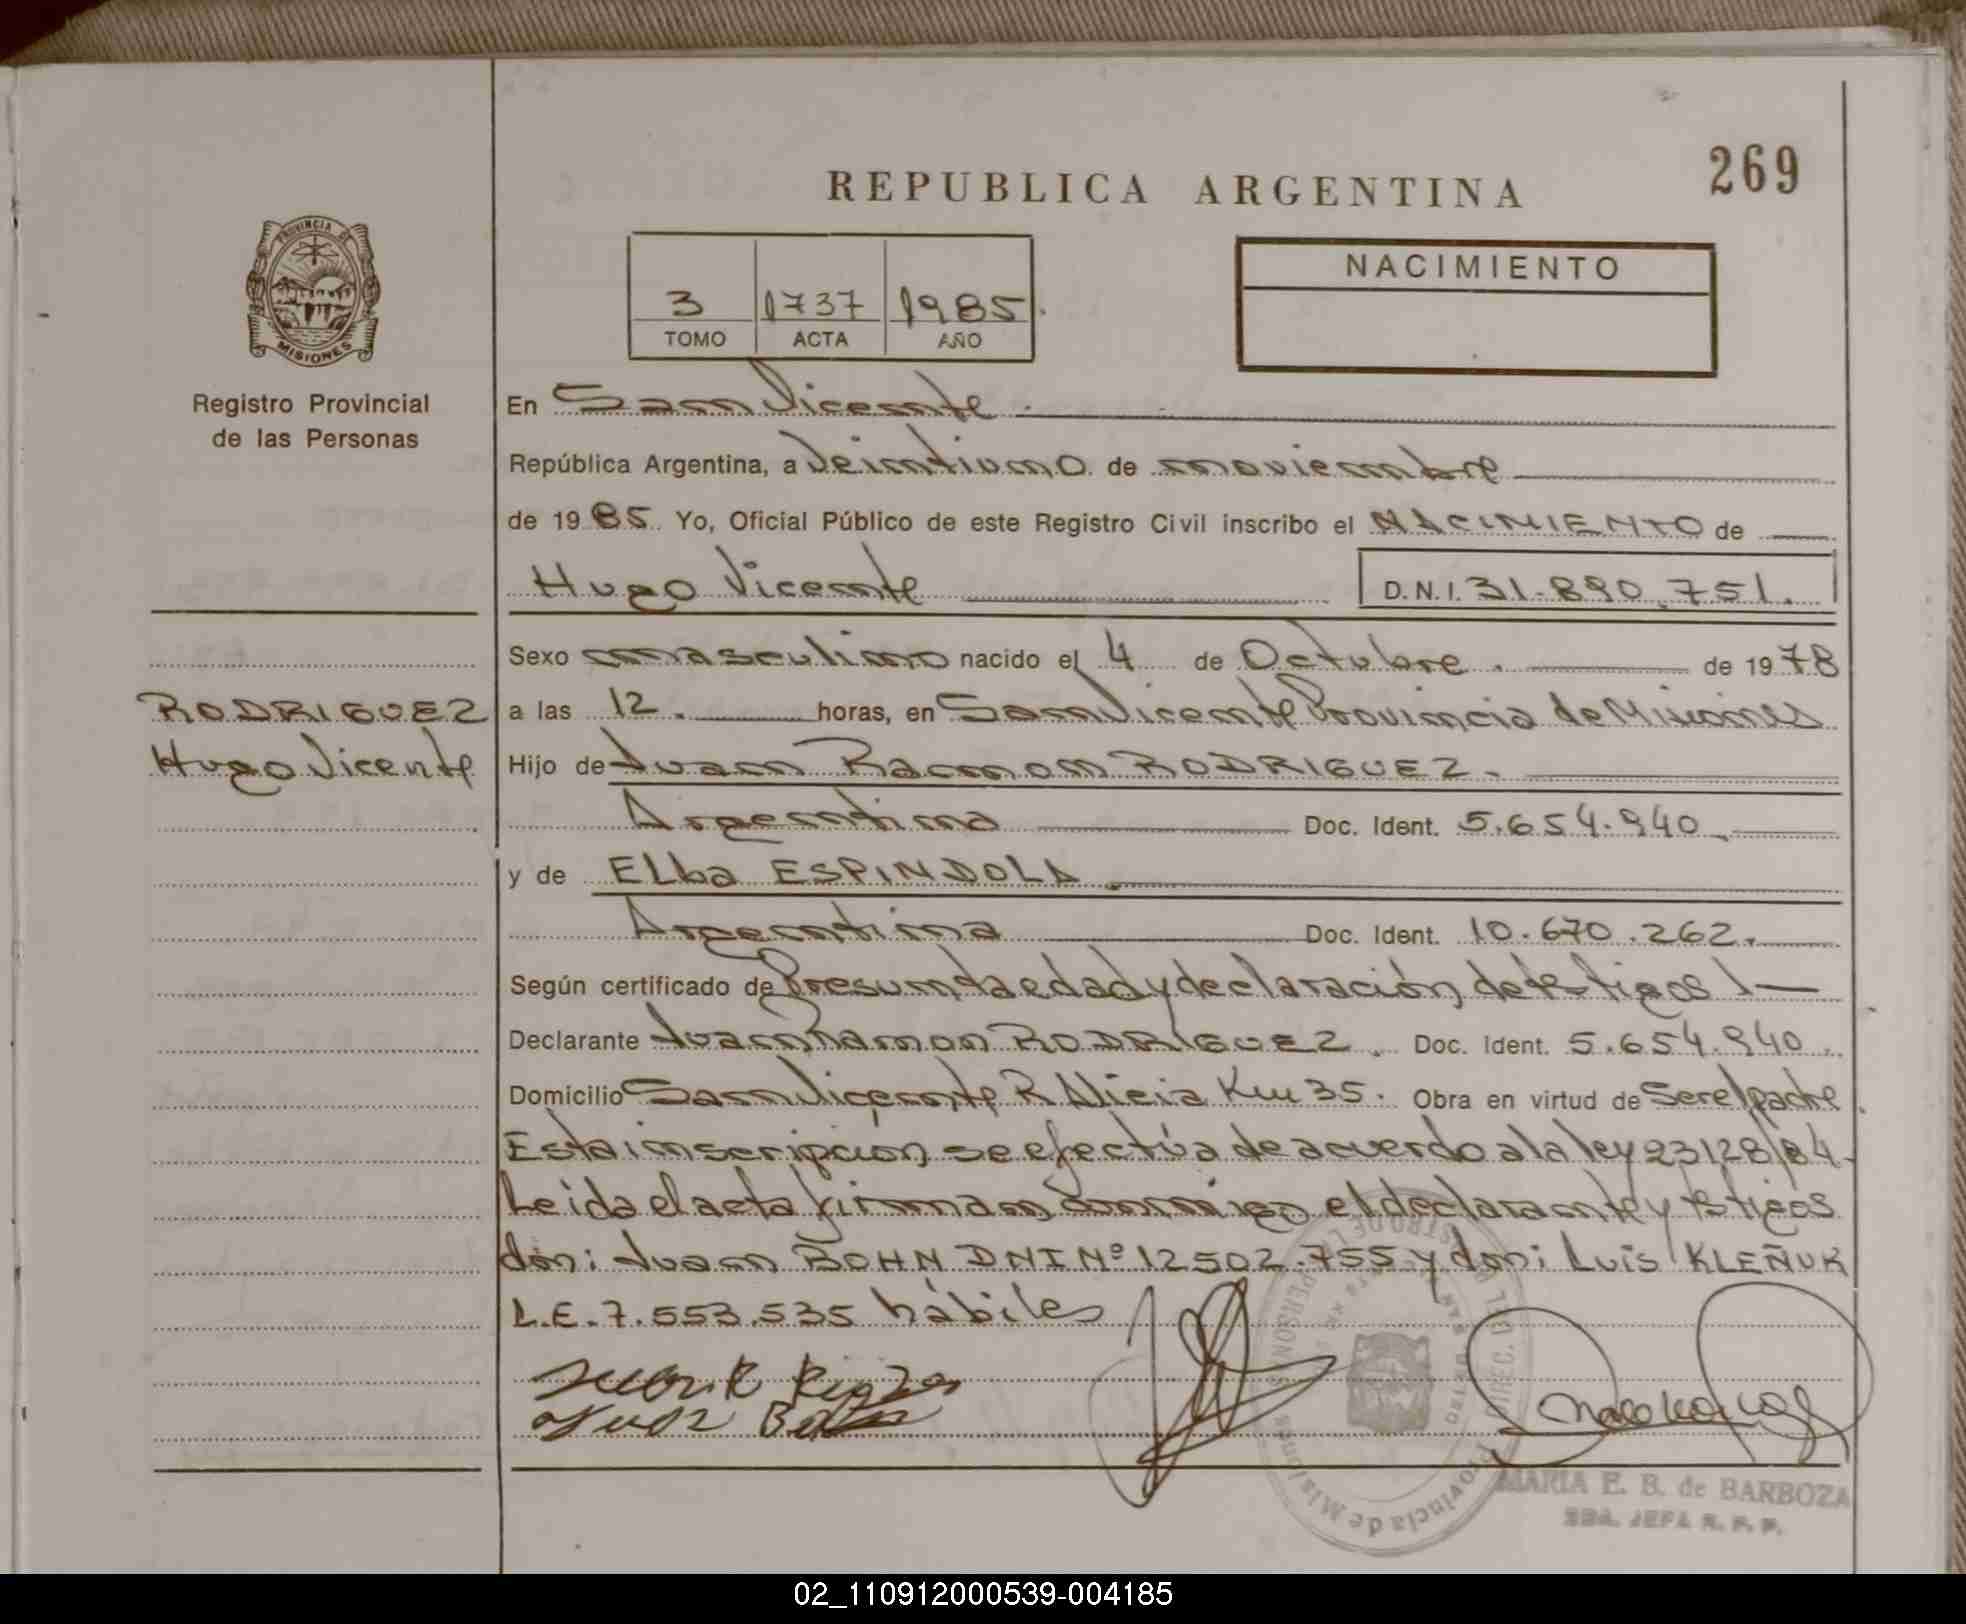 269
REPUBLICA ARGENTINA
PROVINCIA DE
MISIONES
Registro Provincial
de las Personas
3 1737 1985
TOMO ACTA AÑO
NACIMIENTO
En San Vicente
República Argentina, a Veintiuno de noviembre
de 1985 Yo, Oficial Público de este Registro Civil inscribo el NACIMIENTO de
Hugo Vicente D.N.I. 31.890.751.
Sexo masculino nacido el 4 de Octubre. de 1978
RODRIGUEZ
Hugo Vicente
a las 12. horas, en San Vicente Provincia de Misiones
Hijo de Juan Ramon RODRIGUEZ.
Argentina Doc. Ident. 5.654.940
y de Elba ESPINDOLA.
Argentina Doc. Ident. 10.670.262.
Según certificado de Presunta edad y declaración de testigos
Declarante Juan Ramon RODRIGUEZ. Doc. Ident. 5.654.940.
Domicilio San Vicente R Alicia Km 35. Obra en virtud de Ser el padre.
Esta inscripción se efectúa de acuerdo a la ley 23128/84.
Leida el acta firman conmigo el declarante y testigos
don: Juan BOHN DNI Nº 12502.755 y don: Luis KLEÑUK
L.E. 7.553.535 hábiles
Juan Bohn
Provincia de Misiones
MARIA E. B. de BARBOZA
SBA. JEFA R. P. P.
02_110912000539-004185